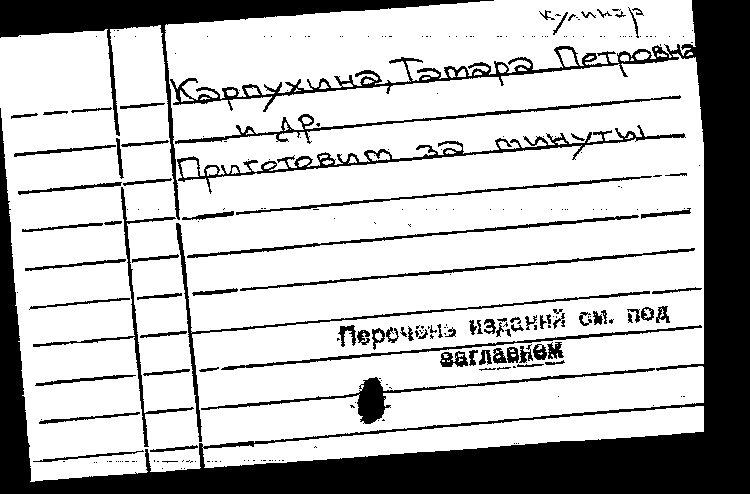 кулинар
Карпухина, Тамара Петровна
и др.
Приготовим за минуты
Перечень изданий см. под
заглавием